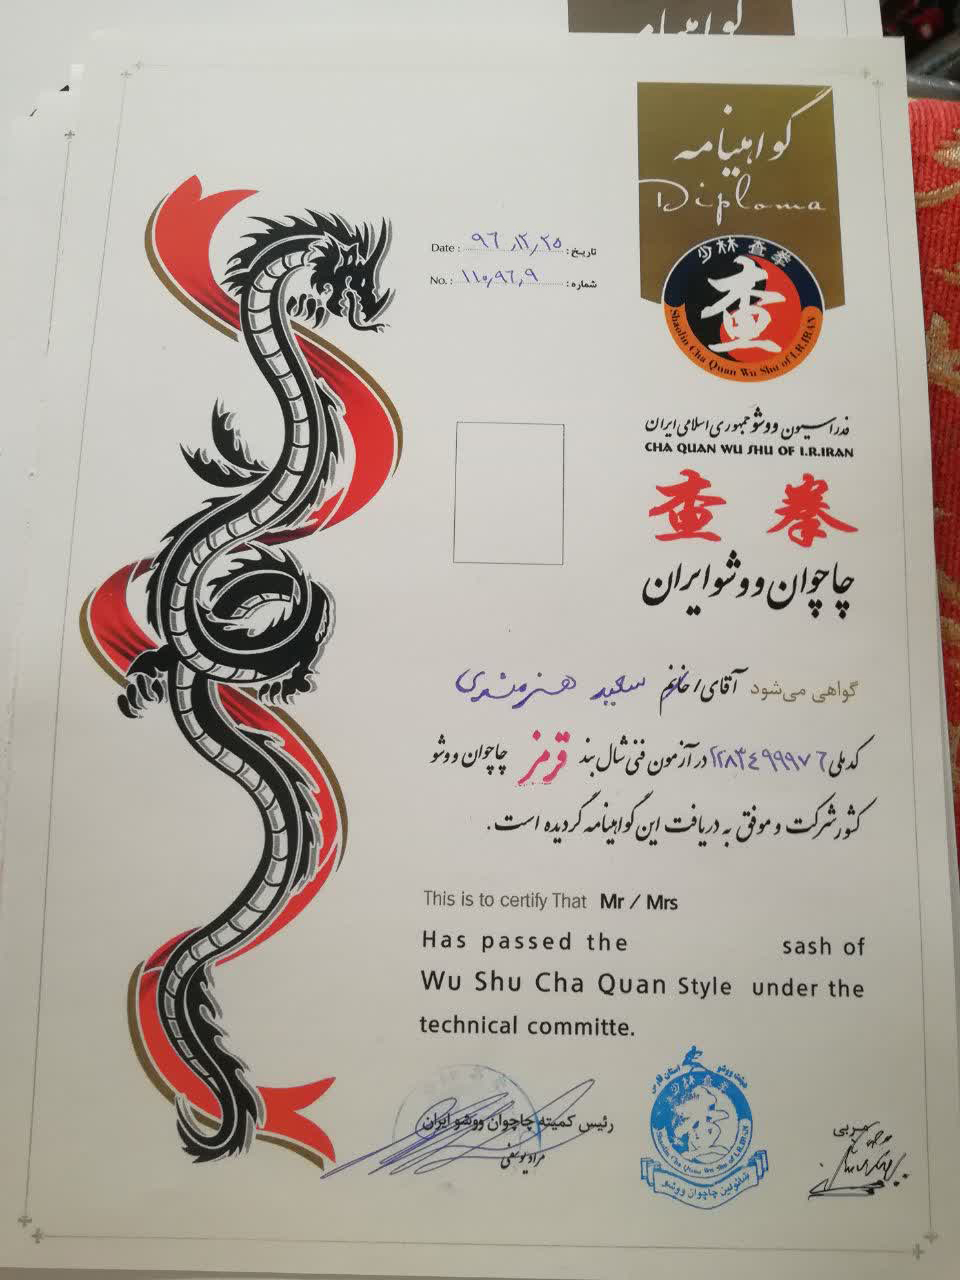 گواهینامه
گواهینامه
Diploma
Date : ۹۶/۱۲/۲۵ تاریخ :
No. : ۱۱۰/۹۶/۹ شماره :
少林查拳
查
Shaolin Cha Quan Wu Shu of I.R.IRAN
فدراسیون ووشو جمهوری اسلامی ایران
CHA QUAN WU SHU OF I.R.IRAN
查 拳
چاچوان ووشو ایران
گواهی می‌شود آقای / خانم سعید هنرمندی
کد ملی ۲۲۸۳۴۹۹۹۷۶ در آزمون فنی شال بند قرمز چاچوان ووشو
کشور شرکت و موفق به دریافت این گواهینامه گردیده است.
This is to certify That Mr / Mrs
Has passed the sash of
Wu Shu Cha Quan Style under the
technical committe.
هیئت ووشو استان فارس
少林查拳
Shaolin Cha Quan Wu Shu of I.R.IRAN
شائولین چاچوان ووشو
رئیس کمیته چاچوان ووشو ایران
مراد یوسفی
مربی